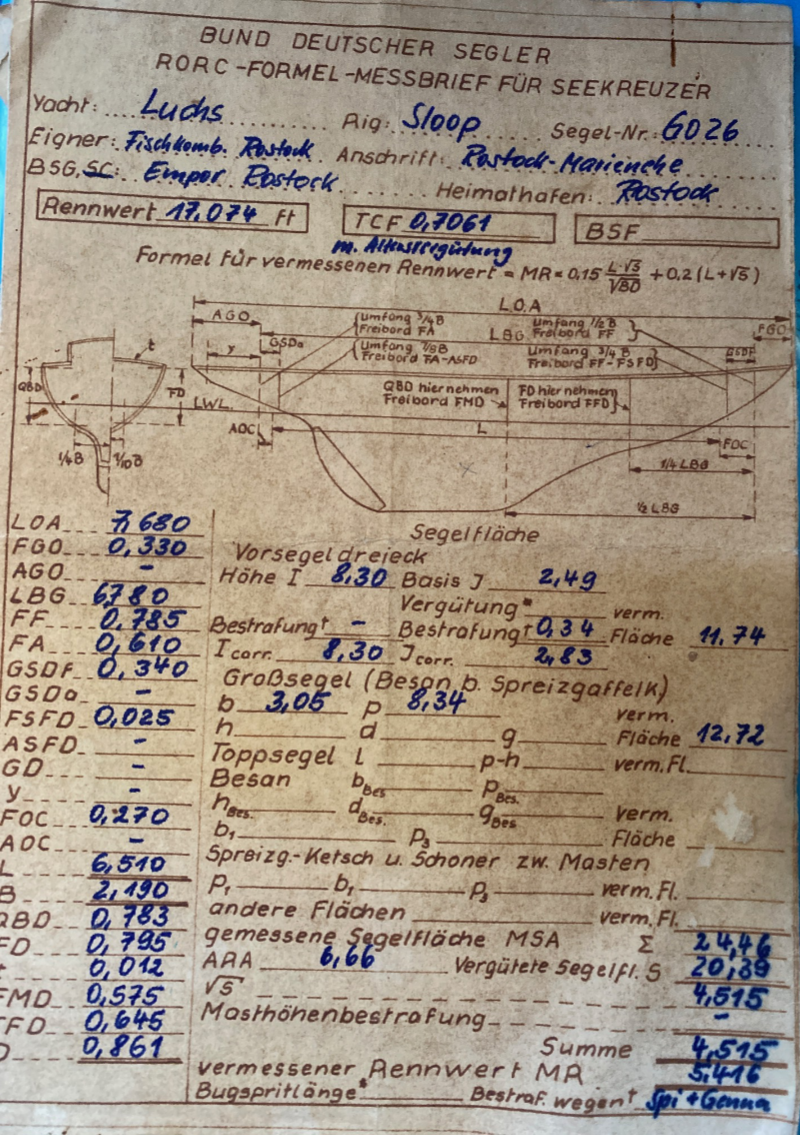 BUND DEUTSCHER SEGLER
RORC-FORMEL-MESSBRIEF FÜR SEEKREUZER
Yacht: Luchs Rig: Sloop Segel-Nr.: GO26
Eigner: Fischkomb. Rostock Anschrift: Rostock-Marienehe
BSG, SC: Empor Rostock Heimathafen: Rostock
Rennwert 17.074 ft TCF 0,7061 BSF
m. Altersvergütung
Formel für vermessenen Rennwert = MR = 0,15 L·√S / √BD + 0,2 (L+√S)
L.O.A
AGO Umfang 3/4 B Umfang 1/2 B FGO
Freibord FA LBG Freibord FF
y GSDa Umfang 7/8 B Umfang 3/4 B GSDF
Freibord FA-ASFD Freibord FF-FSFD
t
QBD FD QBD hier nehmen FD hier nehmen
Freibord FMD Freibord FFD
LWL
AOC L FOC
1/4B 1/10B 1/4 LBG
1/2 LBG
LOA 7,680
FGO 0,330
AGO -
LBG 6,780
FF 0,785
FA 0,610
GSDF 0,340
GSDa -
FSFD 0,025
ASFD -
GD -
y -
FOC 0,270
AOC -
L 6,510
B 2,190
QBD 0,783
FD 0,795
t 0,012
FMD 0,575
FFD 0,645
D 0,861
Segelfläche
Vorsegeldreieck
Höhe I 8,30 Basis J 2,49
Vergütung* verm.
Bestrafung† - Bestrafung† 0,34 Fläche 11.74
I corr. 8,30 J corr. 2,83
Großsegel (Besan b. Spreizgaffelk)
b 3,05 p 8,34 verm.
h d g Fläche 12,72
Toppsegel L p-h verm. Fl.
Besan b Bes p Bes.
h Bes. d Bes. g Bes verm.
b₁ p₃ Fläche
Spreizg.-Ketsch u. Schoner zw. Masten
p₁ b₁ p₃ verm. Fl.
andere Flächen verm. Fl.
gemessene Segelfläche MSA Σ 24,46
ARA 6,66 Vergütete Segelfl. S 20,39
√S 4,515
Masthöhenbestrafung -
Summe 4,515
vermessener Rennwert MR 5,416
Bugspritlänge* Bestraf. wegen† Spi + Genua